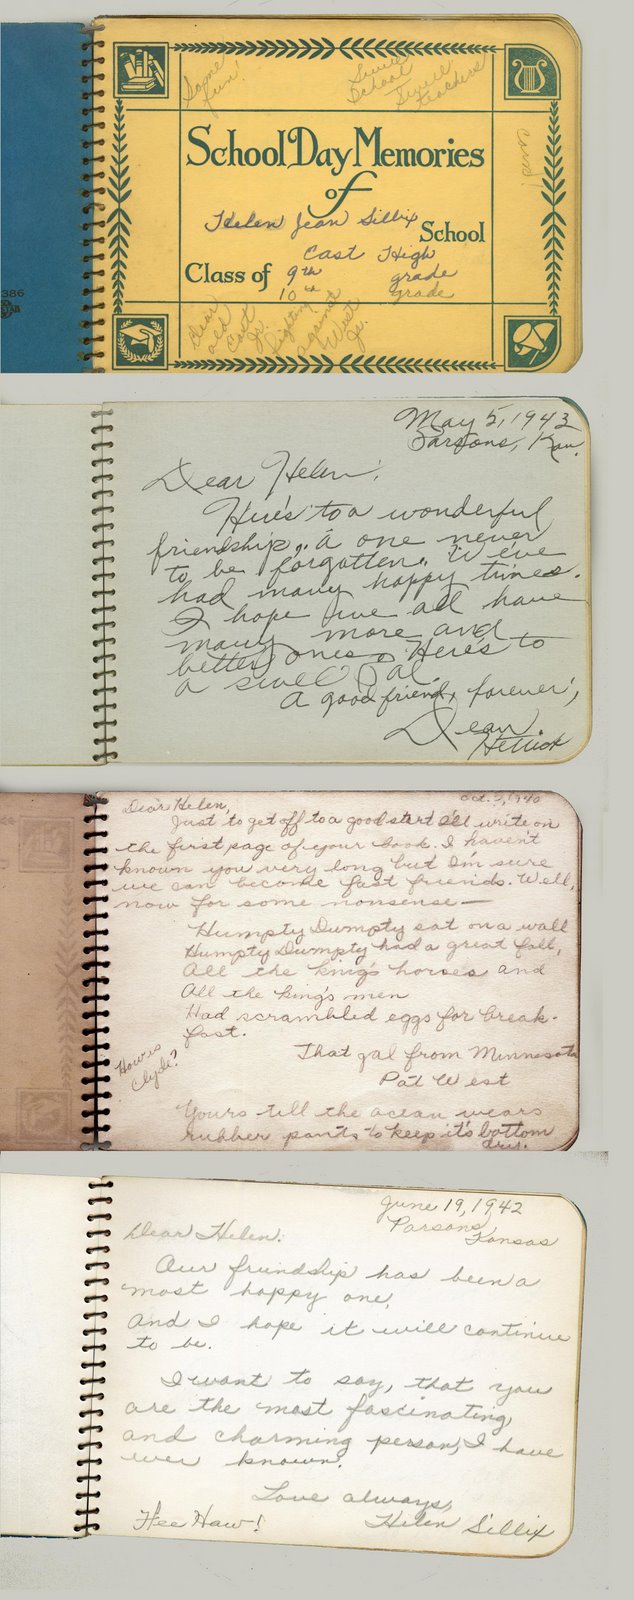 Some
fun!
Swell
School
Swell
teachers
School Day Memories
of
Helen Jean Sillix
School
East High
Class of 9th grade
10th grade
Dear
old
East
Jr.
fighting
against
West
Jr.
386
May 5, 1943
Parsons, Kan.
Dear Helen,
Here's to a wonderful
friendship, "a one never
to be forgotten." We've
had many happy times.
I hope we all have
many more and
better ones. Here's to
a swell pal.
A good friend, forever,
Dean
Oct. 3, 1940
Dear Helen,
Just to get off to a good start I'll write on
the first page of your book. I haven't
known you very long but I'm sure
we can become fast friends. Well,
now for some nonsense—
Humpty Dumpty sat on a wall
Humpty Dumpty had a great fall,
All the king's horses and
All the king's men
Had scrambled eggs for break-
fast.
That gal from Minnesota
Pat West
How is
Clyde?
Yours till the ocean wears
rubber pants to keep it's bottom
dry.
June 19, 1942
Parsons,
Kansas
Dear Helen:
Our friendship has been a
most happy one,
and I hope it will continue
to be.
I want to say, that you
are the most fascinating,
and charming person, I have
ever known.
Love always,
Hee Haw! Helen Sillix